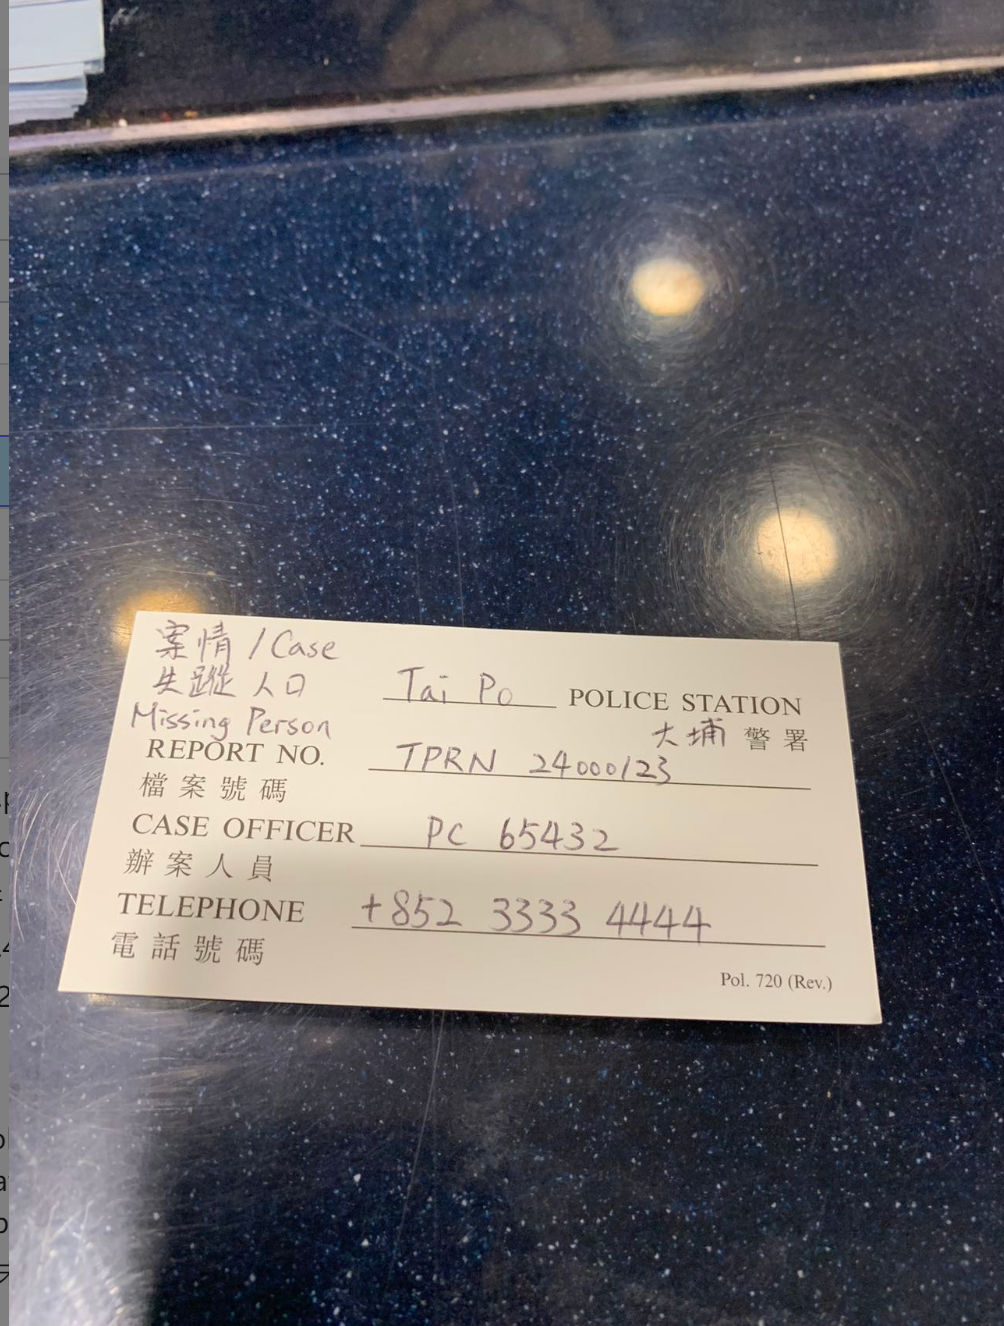 案情 / Case
失蹤人口
Missing Person
Tai Po POLICE STATION
大埔 警署
REPORT NO. TPRN 24000123
檔案號碼
CASE OFFICER PC 65432
辦案人員
TELEPHONE +852 3333 4444
電話號碼
Pol. 720 (Rev.)